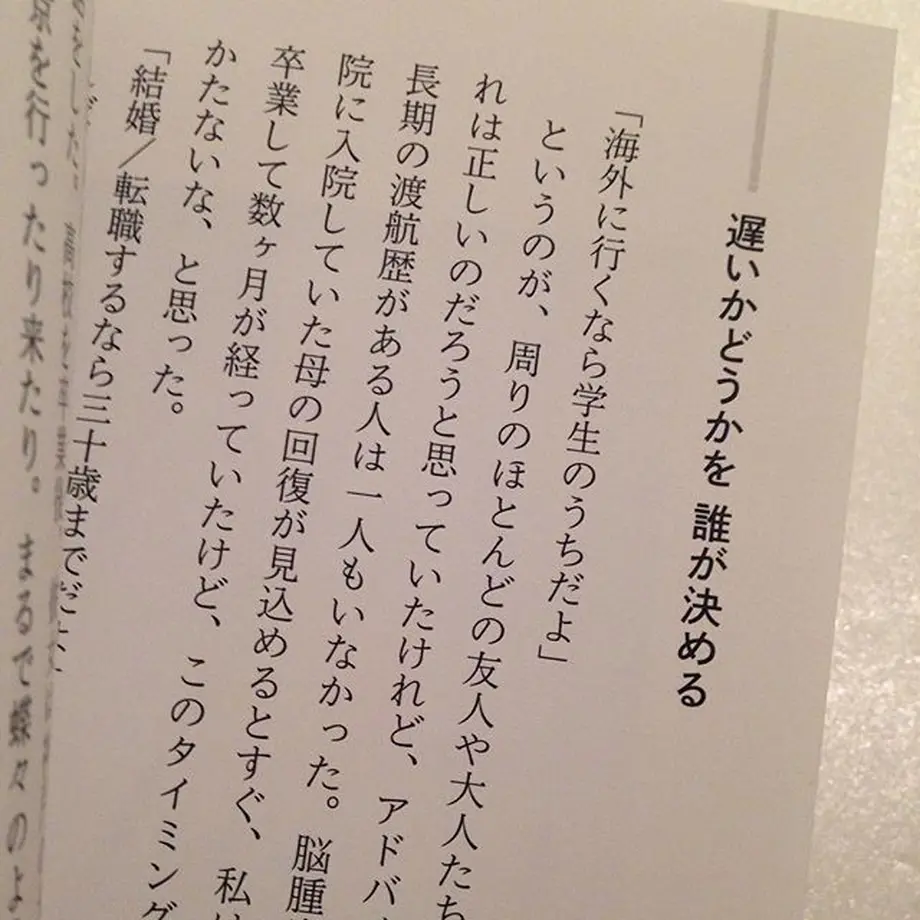 遅いかどうかを 誰が決める
「海外に行くなら学生のうちだよ」
というのが、周りのほとんどの友人や大人たち
れは正しいのだろうと思っていたけれど、アドバ
長期の渡航歴がある人は一人もいなかった。脳腫
院に入院していた母の回復が見込めるとすぐ、私
卒業して数ヶ月が経っていたけど、このタイミング
かたないな、と思った。
「結婚/転職するなら三十歳までだよ
をした。高校を卒業
京を行ったり来たり。まるで蝶々のよ